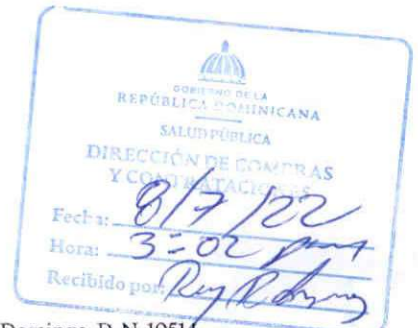 GOBIERNO DE LA
REPÚBLICA DOMINICANA
SALUD PÚBLICA
DIRECCIÓN DE COMPRAS
Y CONTRATACIONES
Fecha: 8/7/22
Hora: 3:02 pm
Recibido por: Rey
Domingo, D.N. 10514